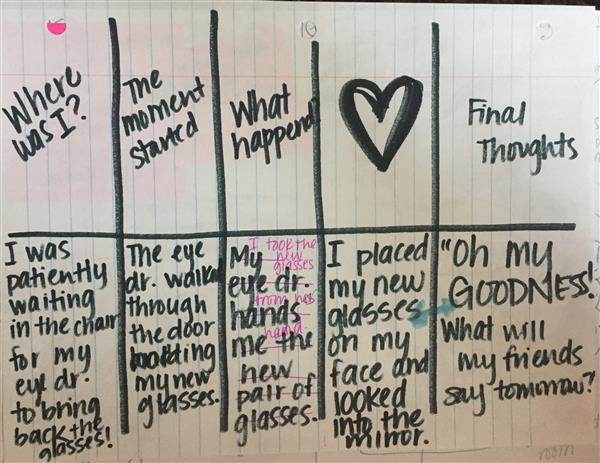 Where
was I?
The
moment
started
What
happend
Final
Thoughts
I was
patiently
waiting
in the chair
for my
eye dr.
to bring
back the
glasses!
The eye
dr. walked
through
the door
my new
glasses.
My
eye dr.
hands
me the
new
pair of
glasses.
I took the
new
glasses
from her
hand
I placed
my new
glasses
on my
face and
looked
into the
mirror.
"Oh my
GOODNESS!
What will
my friends
say tomorrow?
room